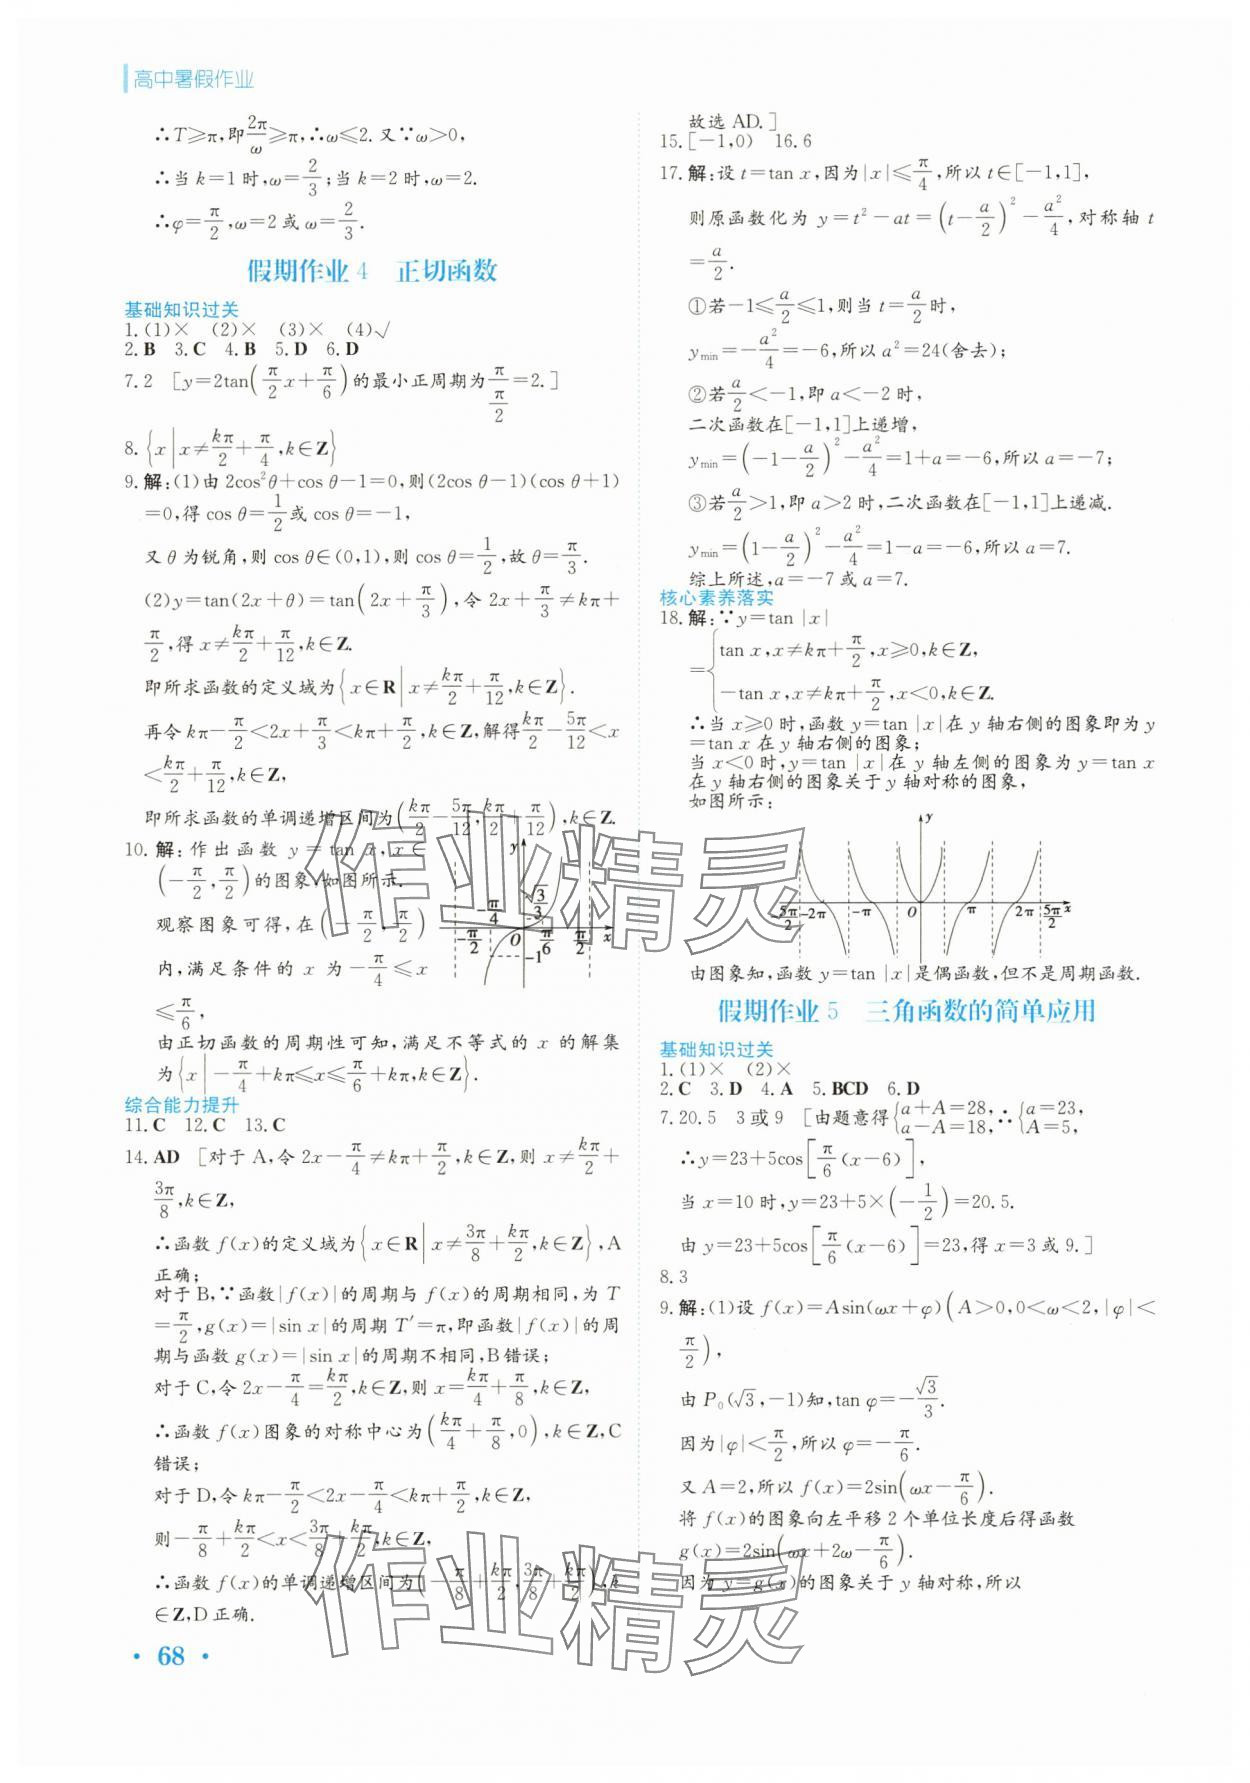 高中暑假作业
∴T⩾π,即2π/ω⩾π,∴ω⩽2.又∵ω>0,
∴当 k=1 时,ω=2/3;当 k=2 时,ω=2.
∴φ=π/2,ω=2 或 ω=2/3.
假期作业 4 正切函数
基础知识过关
1.(1)× (2)× (3)× (4)√
2.B 3.C 4.B 5.D 6.D
7.2 [y=2tan(π/2 x+π/6)的最小正周期为π/(π/2)=2.]
8.{x|x≠kπ/2+π/4,k∈Z}
9.解:(1)由 2cos²θ+cos θ-1=0,则(2cos θ-1)(cos θ+1)
=0,得 cos θ=1/2或 cos θ=-1,
又 θ 为锐角,则 cos θ∈(0,1),则 cos θ=1/2,故 θ=π/3.
(2)y=tan(2x+θ)=tan(2x+π/3),令 2x+π/3≠kπ+
π/2,得 x≠kπ/2+π/12,k∈Z.
即所求函数的定义域为{x∈R|x≠kπ/2+π/12,k∈Z}.
再令 kπ-π/2<2x+π/3<kπ+π/2,k∈Z,解得kπ/2-5π/12<x
<kπ/2+π/12,k∈Z,
即所求函数的单调递增区间为(kπ/2-5π/12,kπ/2+π/12),k∈Z.
10.解:作出函数 y=tan x,x∈
(-π/2,π/2)的图象,如图所示.
观察图象可得,在(-π/2,π/2)
内,满足条件的 x 为-π/4⩽x
⩽π/6,
y
√3/3
-π/2 -π/4 O π/6 π/2 x
-1
由正切函数的周期性可知,满足不等式的 x 的解集
为{x|-π/4+kπ⩽x⩽π/6+kπ,k∈Z}.
综合能力提升
11.C 12.C 13.C
14.AD [对于 A,令 2x-π/4≠kπ+π/2,k∈Z,则 x≠kπ/2+
3π/8,k∈Z,
∴函数 f(x)的定义域为{x∈R|x≠3π/8+kπ/2,k∈Z},A
正确;
对于 B,∵函数|f(x)|的周期与 f(x)的周期相同,为 T
=π/2,g(x)=|sin x|的周期 T′=π,即函数|f(x)|的周
期与函数 g(x)=|sin x|的周期不相同,B 错误;
对于 C,令 2x-π/4=kπ/2,k∈Z,则 x=kπ/4+π/8,k∈Z,
∴函数 f(x)图象的对称中心为(kπ/4+π/8,0),k∈Z,C
错误;
对于 D,令 kπ-π/2<2x-π/4<kπ+π/2,k∈Z,
则-π/8+kπ/2<x<3π/8+kπ/2,k∈Z,
∴函数 f(x)的单调递增区间为(-π/8+kπ/2,3π/8+kπ/2),k
∈Z,D 正确.
· 68 ·
故选 AD.]
15.[-1,0) 16.6
17.解:设 t=tan x,因为|x|⩽π/4,所以 t∈[-1,1],
则原函数化为 y=t²-at=(t-a/2)²-a²/4,对称轴 t
=a/2.
①若-1⩽a/2⩽1,则当 t=a/2时,
ymin=-a²/4=-6,所以 a²=24(舍去);
②若a/2<-1,即 a<-2 时,
二次函数在[-1,1]上递增,
ymin=(-1-a/2)²-a²/4=1+a=-6,所以 a=-7;
③若a/2>1,即 a>2 时,二次函数在[-1,1]上递减.
ymin=(1-a/2)²-a²/4=1-a=-6,所以 a=7.
综上所述,a=-7 或 a=7.
核心素养落实
18.解:∵y=tan |x|
={tan x,x≠kπ+π/2,x⩾0,k∈Z,
-tan x,x≠kπ+π/2,x<0,k∈Z.
∴当 x⩾0 时,函数 y=tan |x|在 y 轴右侧的图象即为 y
=tan x 在 y 轴右侧的图象;
当 x<0 时,y=tan |x|在 y 轴左侧的图象为 y=tan x
在 y 轴右侧的图象关于 y 轴对称的图象,
如图所示:
y
-5π/2 -2π -π O π 2π 5π/2 x
由图象知,函数 y=tan |x|是偶函数,但不是周期函数.
假期作业 5 三角函数的简单应用
基础知识过关
1.(1)× (2)×
2.C 3.D 4.A 5.BCD 6.D
7.20.5 3 或 9 [由题意得{a+A=28,a-A=18,∴{a=23,A=5,
∴y=23+5cos[π/6(x-6)],
当 x=10 时,y=23+5×(-1/2)=20.5.
由 y=23+5cos[π/6(x-6)]=23,得 x=3 或 9.]
8.3
9.解:(1)设 f(x)=Asin(ωx+φ)(A>0,0<ω<2,|φ|<
π/2),
由 P₀(√3,-1)知,tan φ=-√3/3.
因为|φ|<π/2,所以 φ=-π/6.
又 A=2,所以 f(x)=2sin(ωx-π/6).
将 f(x)的图象向左平移 2 个单位长度后得函数
g(x)=2sin(ωx+2ω-π/6).
因为 y=g(x)的图象关于 y 轴对称,所以
作业精灵
作业精灵